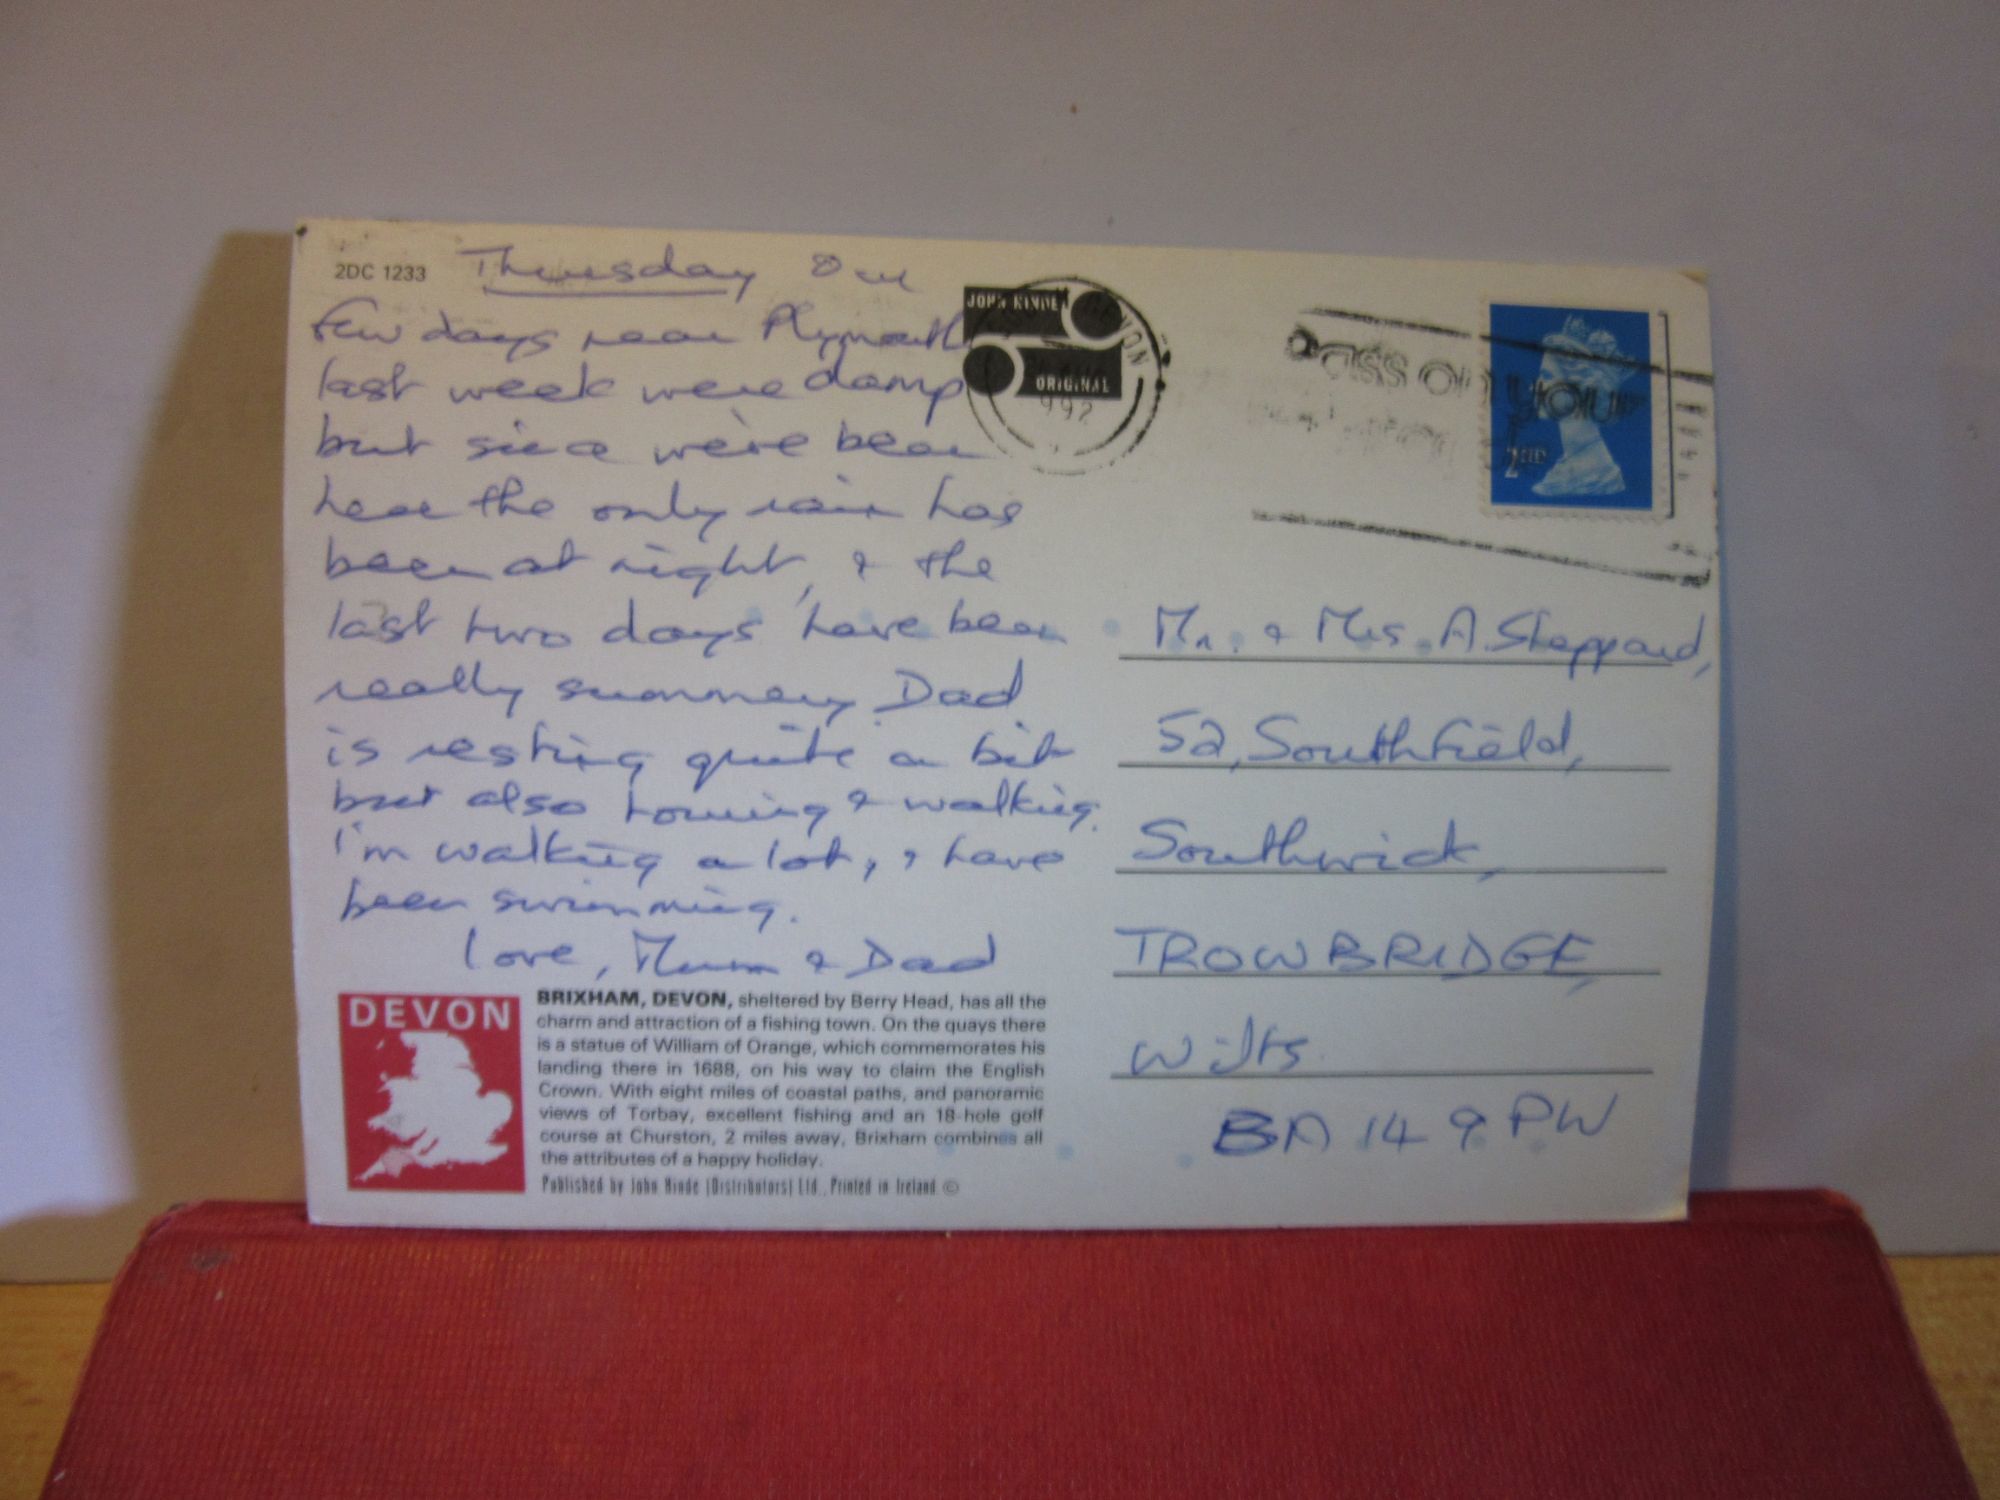 2DC 1233
Thursday Our
few days near Plymouth
last week were damp
but since we've been
here the only rain has
been at night, & the
last two days have been
really summery. Dad
is resting quite a bit
but also rowing & walking.
I'm walking a lot, & have
been swimming.
Love, Mum & Dad
JOHN HINDE
ORIGINAL
DEVON
992
Pass on your
2nd
Mr. & Mrs. A. Sheppard,
52, Southfield,
Southwick,
TROWBRIDGE,
Wilts
BA14 9PW
DEVON
BRIXHAM, DEVON, sheltered by Berry Head, has all the
charm and attraction of a fishing town. On the quays there
is a statue of William of Orange, which commemorates his
landing there in 1688, on his way to claim the English
Crown. With eight miles of coastal paths, and panoramic
views of Torbay, excellent fishing and an 18-hole golf
course at Churston, 2 miles away, Brixham combines all
the attributes of a happy holiday.
Published by John Hinde (Distributors) Ltd., Printed in Ireland ©